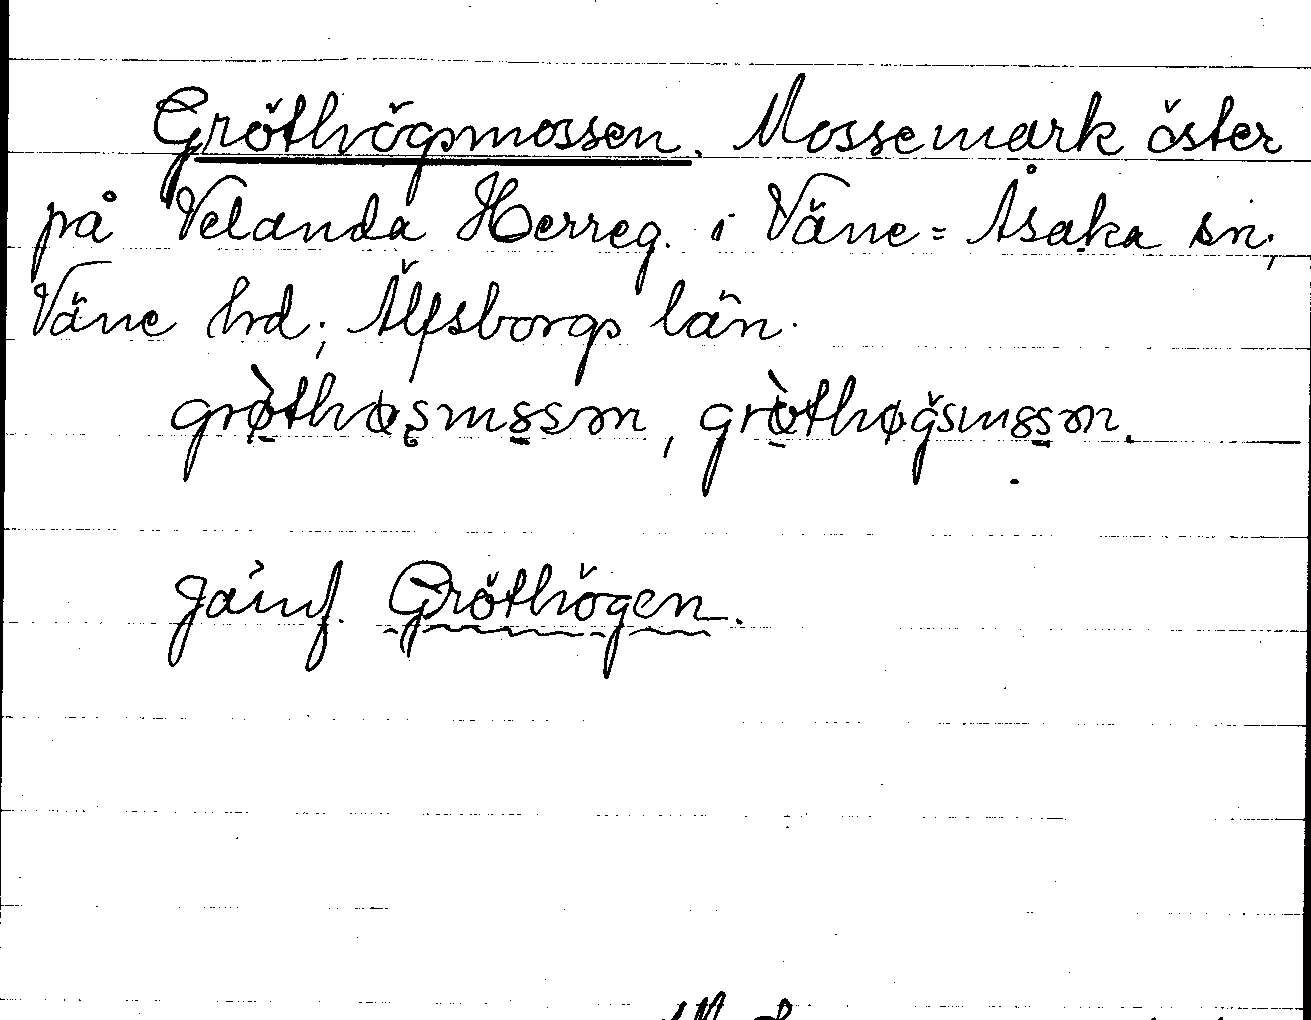 Gröthögsmossen. Mossemark öster
på Velanda Herreg. i Väne-Åsaka sn;
Väne hd; Älfsborgs län.
grøthøsmssn, grøthøgsmssn.
Jämf. Gröthögen.